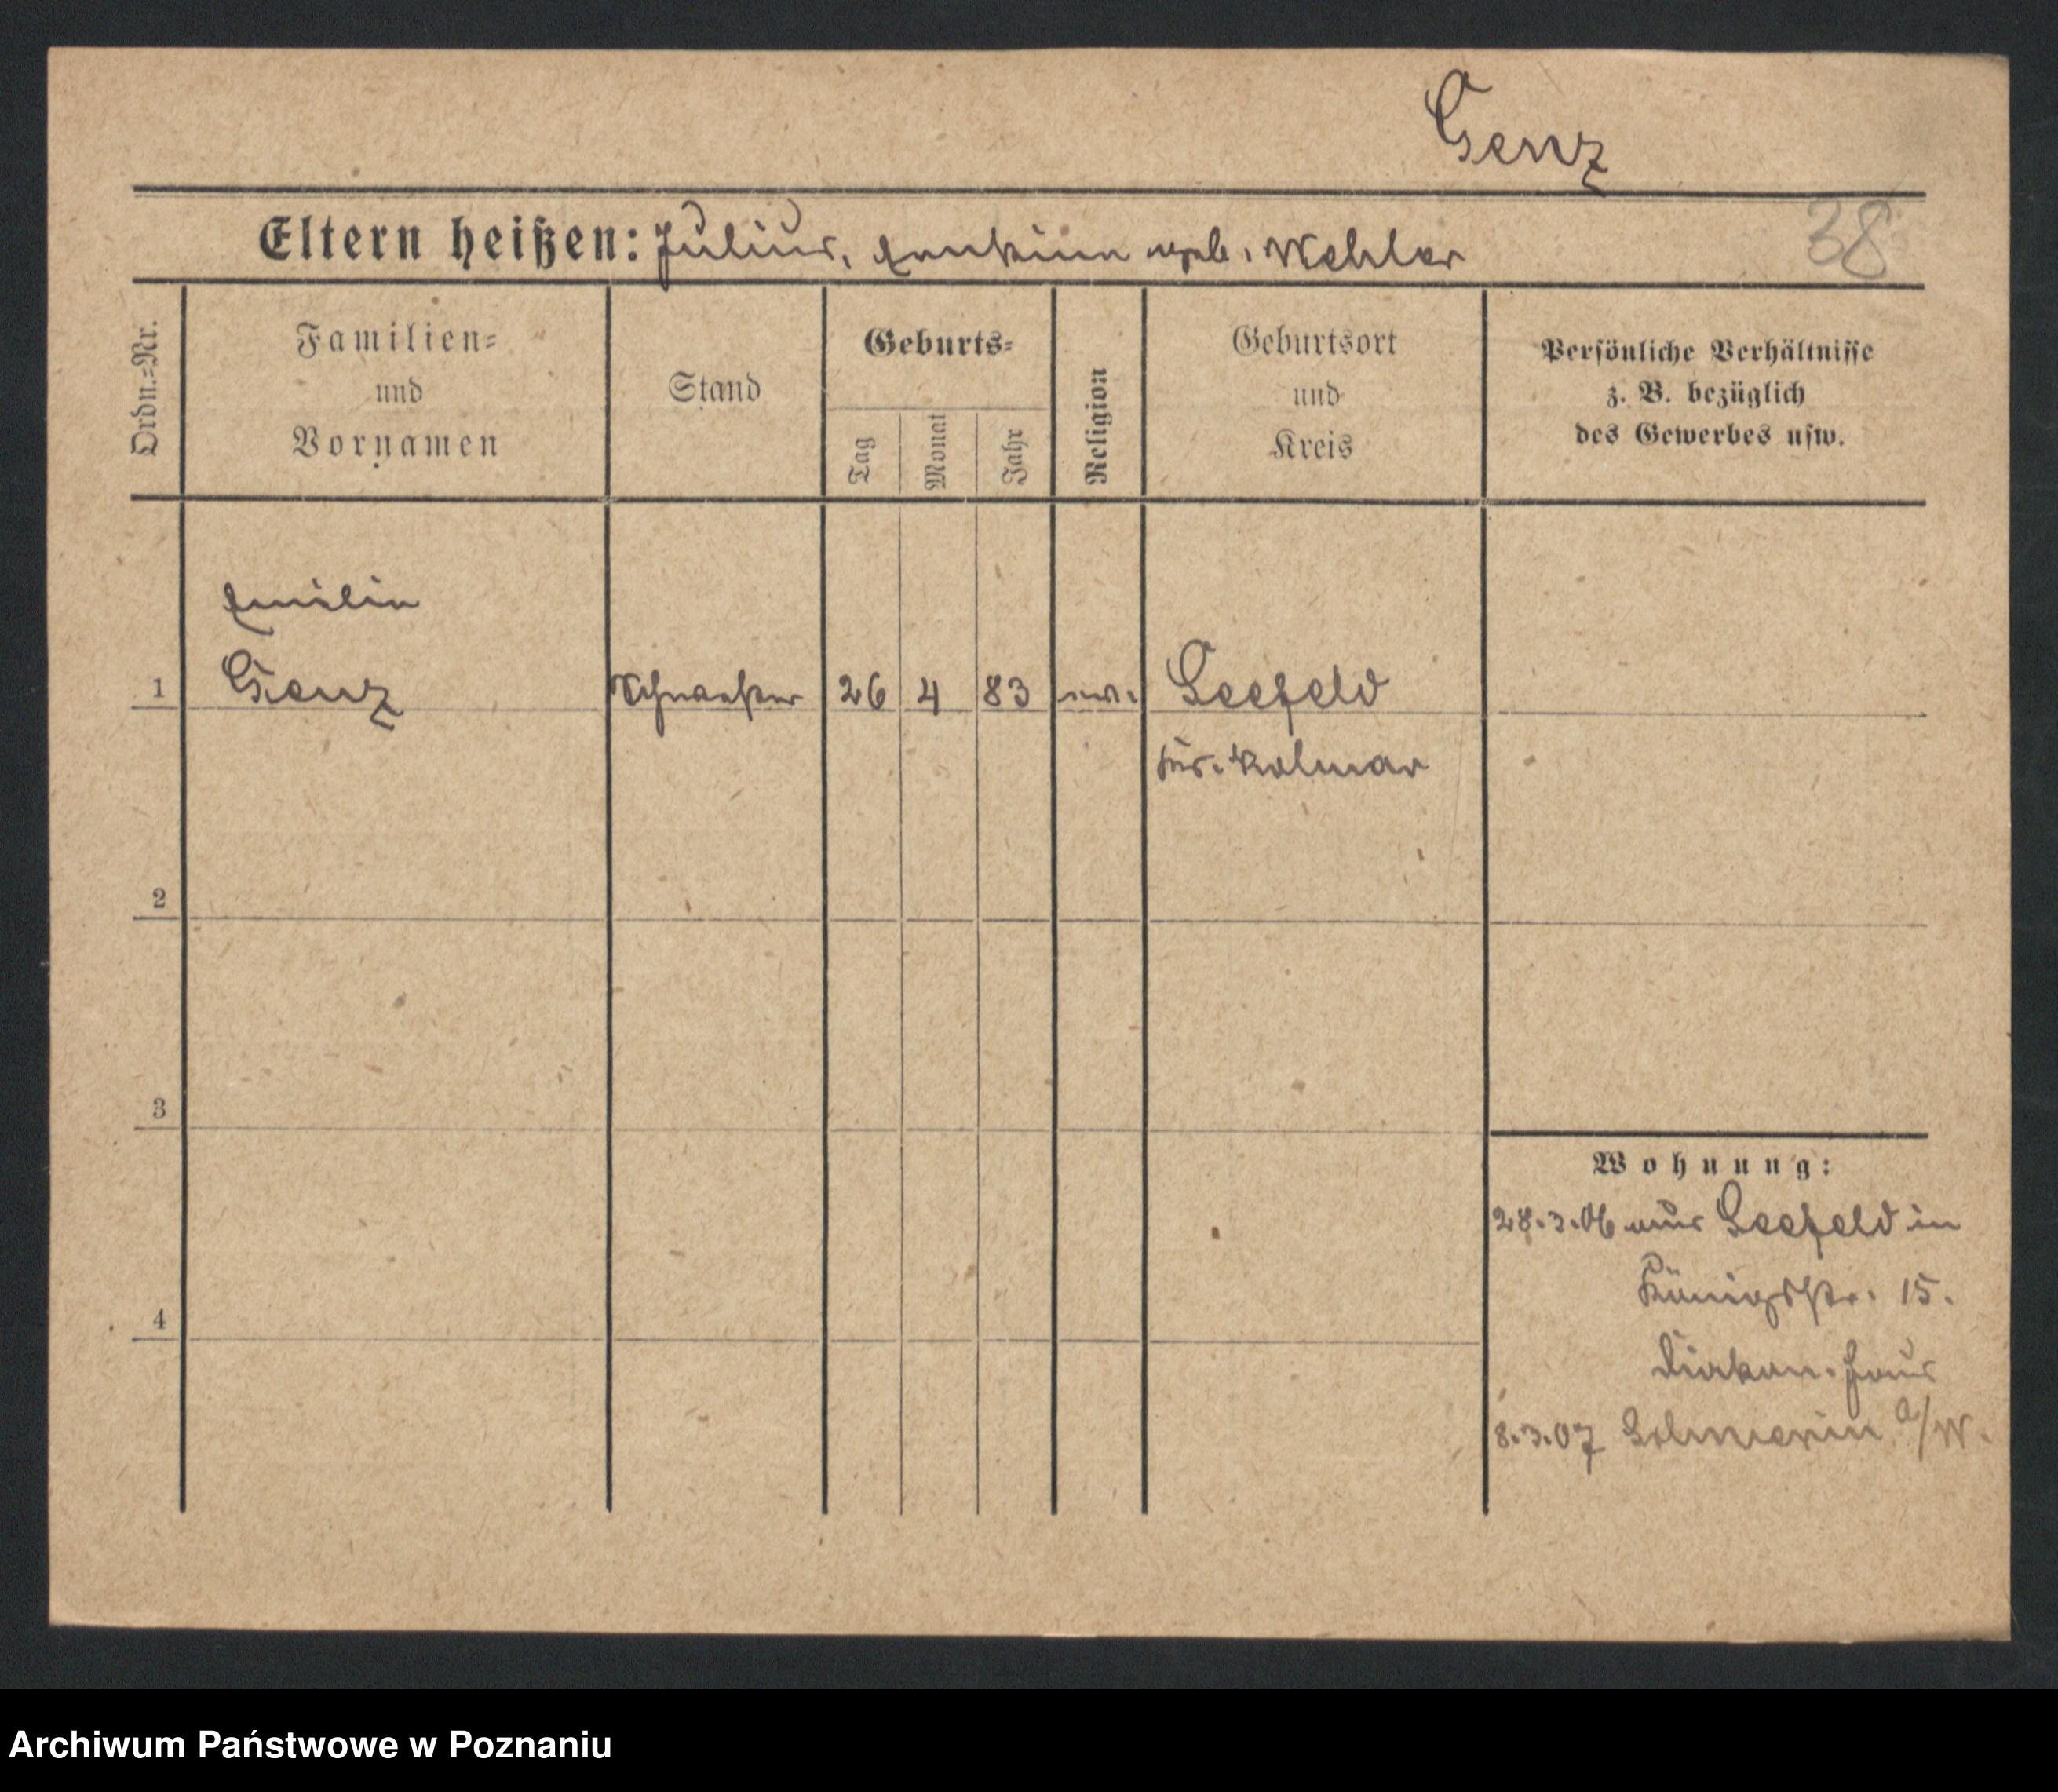 Genz
Eltern heißen: Julius, Ernestine geb. Wehler
38
Ordn.=Nr.
Familien=
und
Vornamen
Stand
Geburts=
Tag
Monat
Jahr
Religion
Geburtsort
und
Kreis
Persönliche Verhältnisse
z. B. bezüglich
des Gewerbes usw.
Emilie
1 Genz Schwester 26 4 83 ev. Seefeld
Kr. Kolmar
2
3
4
Wohnung:
28.3.06 aus Seefeld in
Königstr. 15.
Diakon. Haus
8.3.07 a/W.
Archiwum Państwowe w Poznaniu